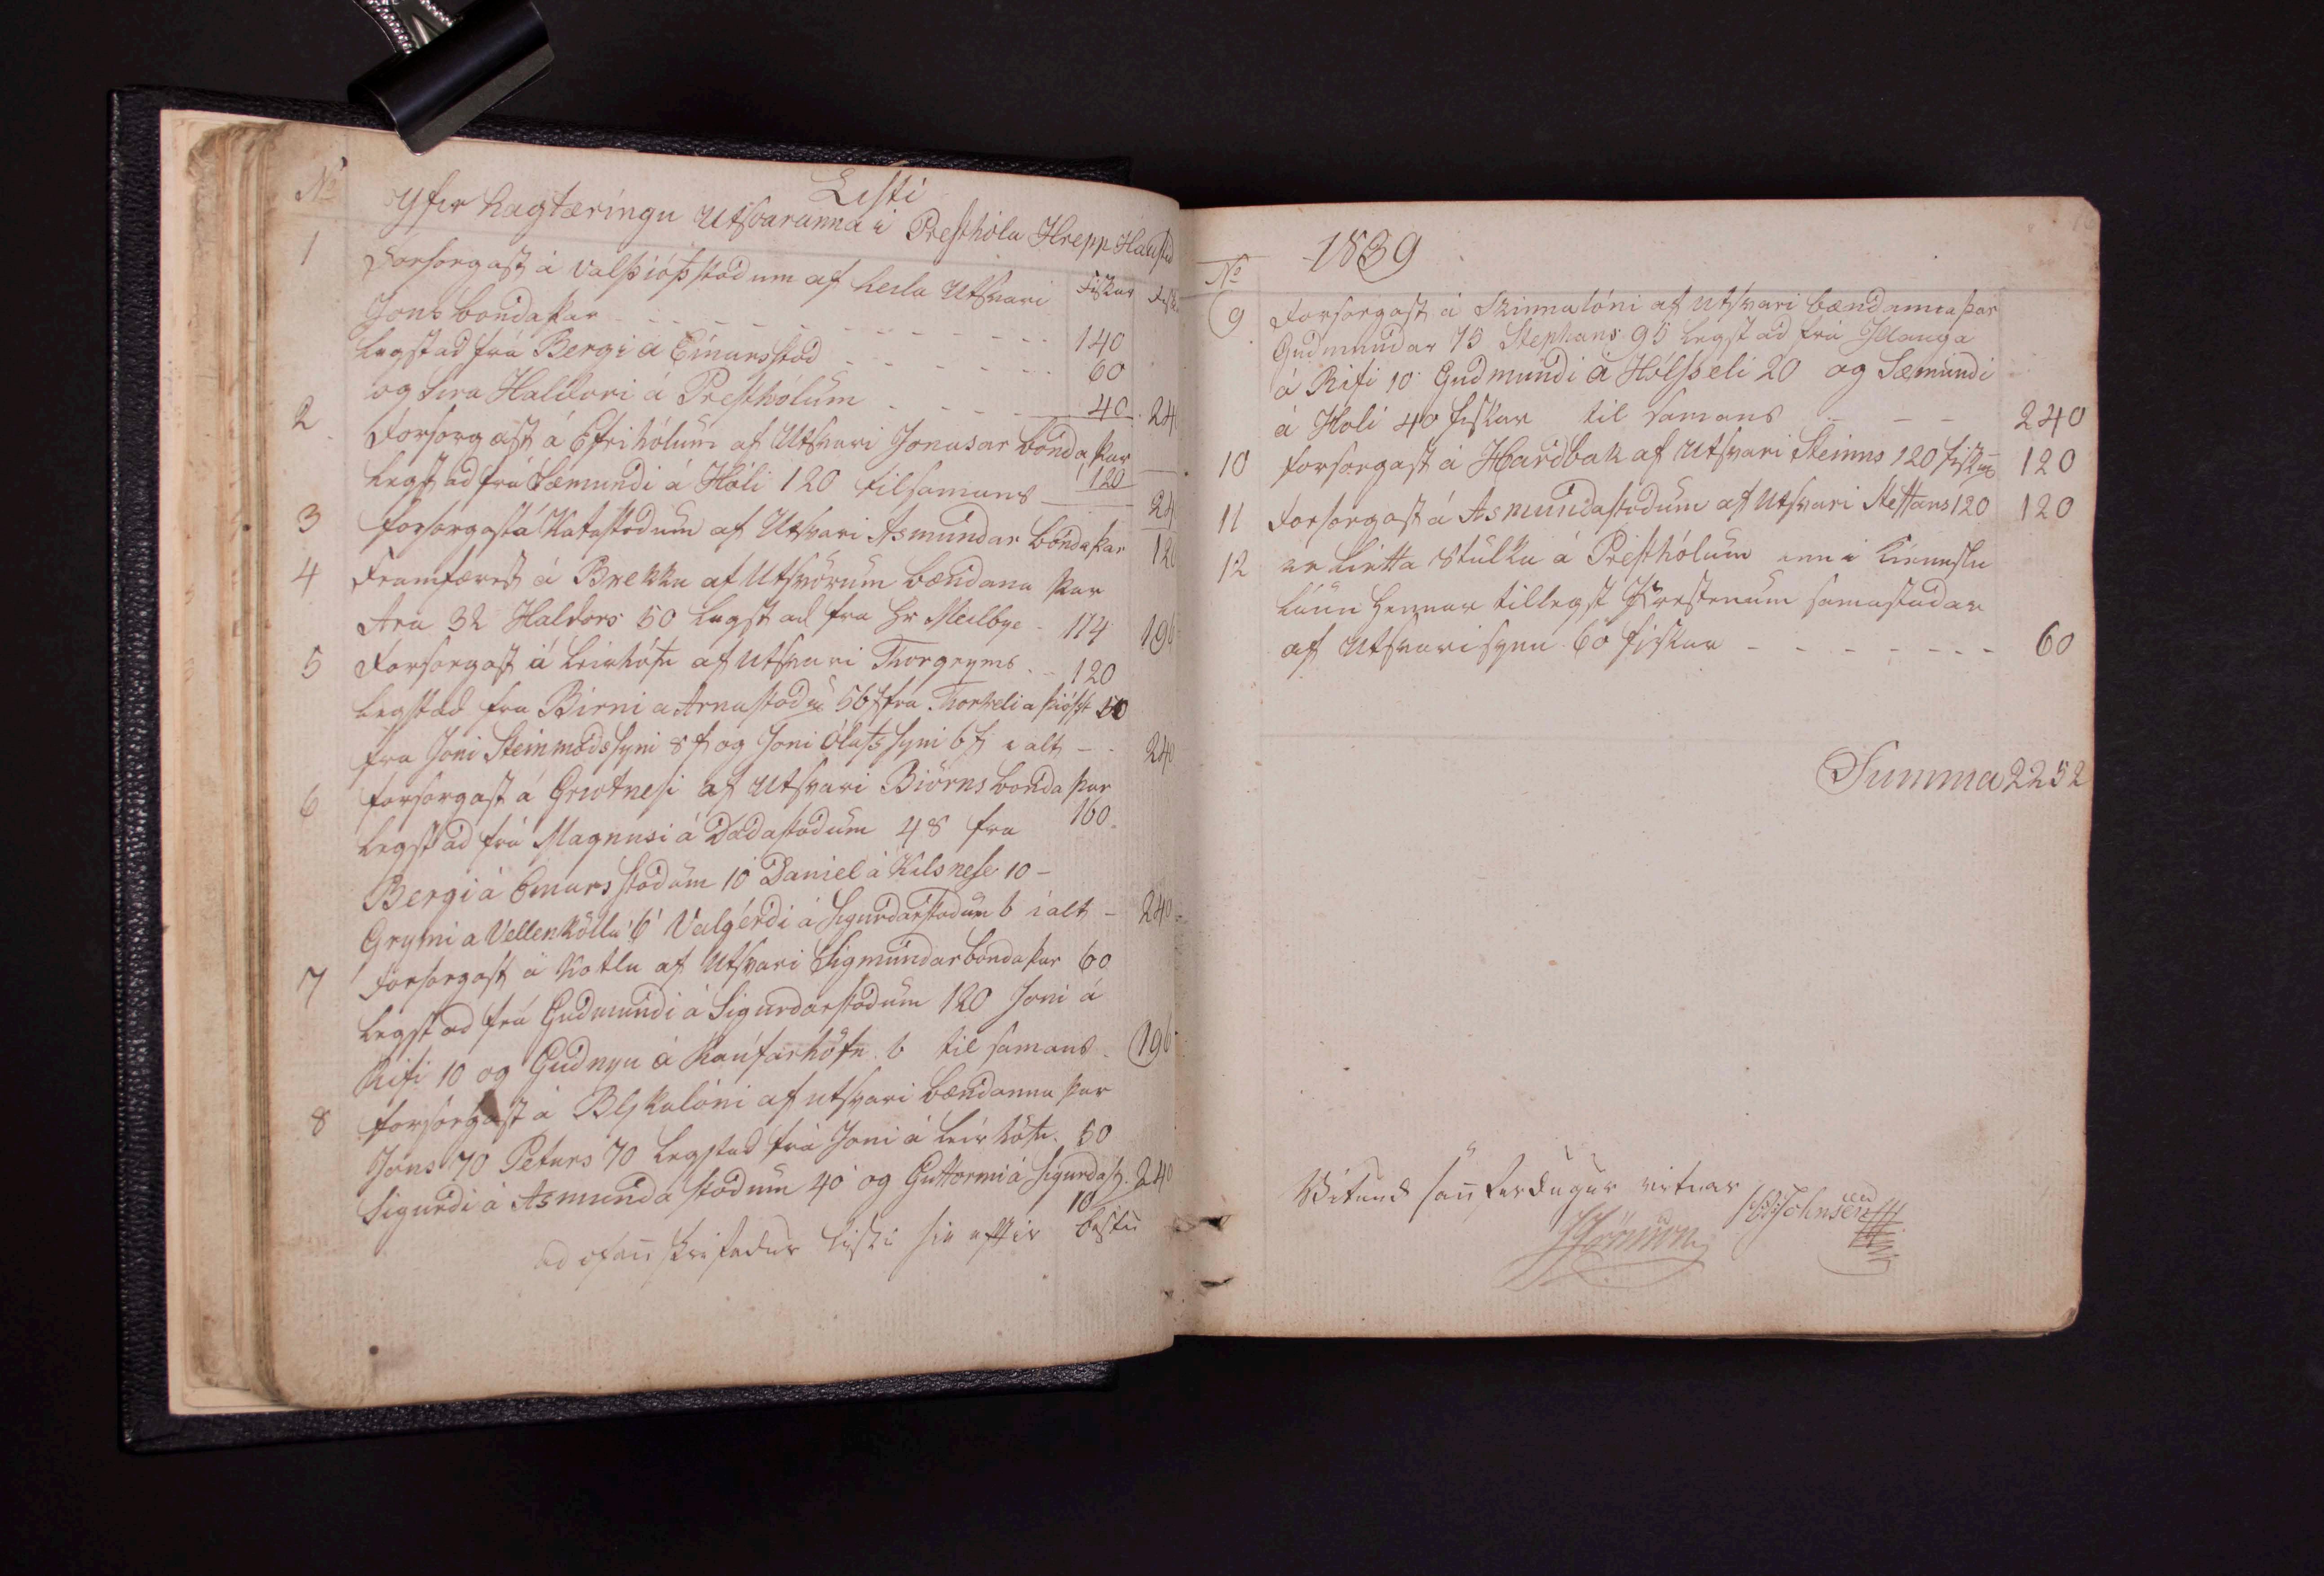 Listi
No yfir hagtæringu Utsvaranna i Presthóla Hrepp Haustid
fiskar fisk
1 Forsorgast á Valþiófsstödum af heila Utsvari
Jons bonda þar - - - 140
Legst ad frá Bergi á Einarsstöd - - - 60
og Sira Haldori á Presthólum - - - 40 24
2 Forsorgast á Efrihólum af Utsvari Jonasar bónda þar 120
Legst ad frá Sæmundi á Hóli 120 tilsamans - 24
3 forsorgast á Katastödum af Utsvari Asmundar bónda þar 120
4 Framfærest á Brekku af Utsvörum bændana þar
Ara 32 Haldors 50 Legst ad fra Hr Meilbye - 114 196
5 Forsorgast á Leirhöfn af Utsvari Thorgryms - 120
Legst ad fra Birni a Arnastodū 56 f fra Thorkeli a þiófst 50
fra Joni Steinmodssyni 8 f og Joni Ólafssyni 6 f i alt - 240
6 forsorgast á Griotnesi af Utsvari Biörns bonda þar 160
Legst ad frá Magnusi á Dadastödum 48 fra
Bergi á Einarsstödum 10 Daniel á Kilsnese 10 -
Grymi a Vellenköllu 6 Valgérdi á Sigurdarstodum 6 i alt - 240
7 Forsorgast á Kotlu af Utsvari Sigmundar bonda þar 60
Legst ad frá Gudmundi á Sigurdarstödum 120 Joni á
Rifi 10 og Gudnyu á Raufarhöfn 6 til samans - 196
8 forsorgast á Blikalóni af utsvari bændanna þar
Jons 70 Peturs 70 Legst ad frá Joni á Leirhöfn. 50
Sigurdi á Asmundastödum 40 og Guttormi á Sigurdast. 10 240
ad ofan skrifadur Listi sie eftir bestu
1839
No
9 Forsorgast á Skinnalóni af utsvari bændanna þar
Gudmundar 75 Stephans 95 Legst ad frá Illauga
á Rifi 10 Gudmundi á Hólsseli 20 og Sæmundi
á Holi 40 fiskar til samans - - - 240
10 forsorgast á Hardbak af Utsvari Steinns 120 fiskum 120
11 Forsorgast á Asmundastödum af Utsvari Steffans 120 120
12 er Lietta Stulka á Presthólum enn i
Laun hennar tillegst Prestenum samastadar
af Utsvari synu 60 fiskar - - - 60
Summa 2252
Vitund sannferdugur vitnar